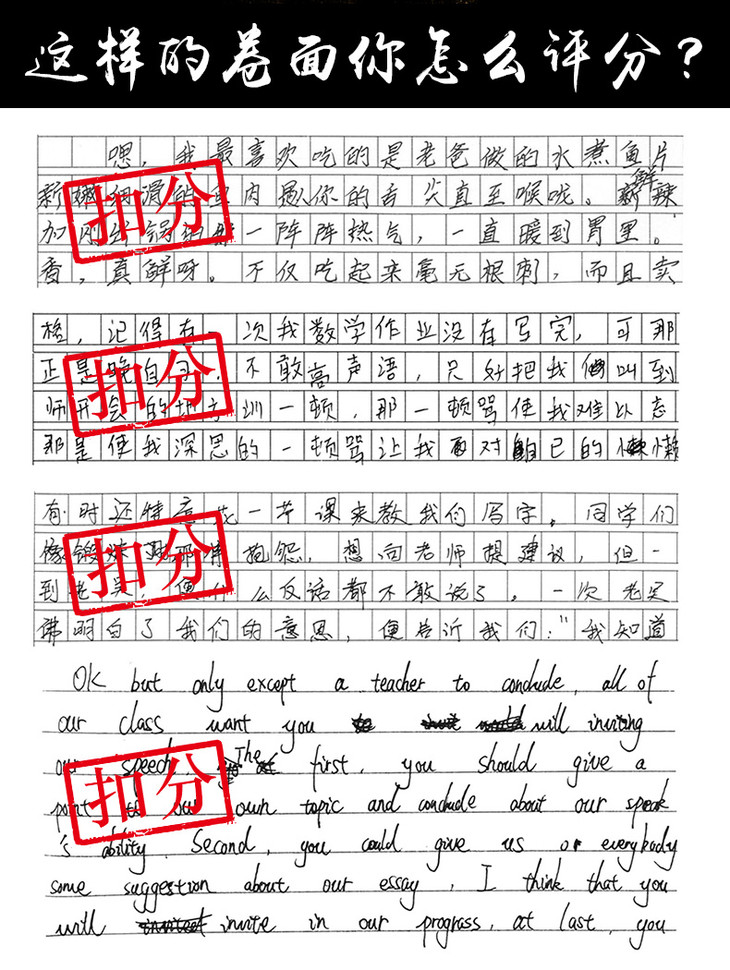 这样的卷面你怎么评分?
嗯,我最喜欢吃的是老爸做的水煮鱼片
新嫩细滑的鱼肉 你的舌尖直至喉咙。新鲜辣
加刚出锅的那一阵阵热气,一直暖到胃里。
香,真鲜呀。不仅吃起来毫无根刺,而且卖
扣分
格,记得有一次我数学作业没有写完,可那
正是晚自习,不敢高声语,只好把我 叫到
师 的 训一顿,那一顿骂使我难以忘
那是使我深思的一顿骂让我面对自己的懒
扣分
有时还特意找一节课来教我们写字。同学们
像 抱怨,想向老师提建议,但一
到 ,便什么反话都不敢说了。一次老足
佛明白了我们的意思,便告诉我们:"我知道
扣分
OK but only except a teacher to conclude, all of
our class want you will inviting
our speech. The first, you should give a
point our own topic and conclude about our speak
's ability. Second, you could give us or everybody
some suggestion about our essay, I think that you
will invite in our prograss, at last, you
扣分